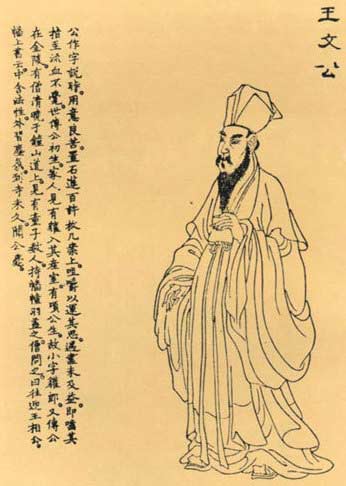 王文公
公作字説時。用意良苦。置石蓮百許枚几案上。咀嚼以運其思。遇盡未及益。即嚙其
指至流血不覺。世傳公初生。家人見有獾入其産室。有頃公生。故小字獾郎。又傳公
在金陵。有僧清曉于鐘山道上。見有童子數人。持幡幢羽蓋之。僧問之。曰往迎王相公。
幡上書云。中含法性。外習塵氛。到寺未久。聞公薨。